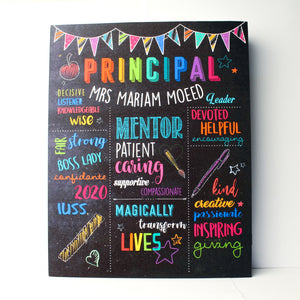 PRINCIPAL
MRS MARIAM MOEED
DECISIVE
LISTENER
KNOWLEDGEABLE
wise
FAIR
strong
BOSS LADY
confidante
2020
IUSS.
MENTOR
PATIENT
caring
supportive
COMPASSIONATE
MAGICALLY
transform
LIVES
Leader
DEVOTED
HELPFUL
encouraging
kind
creative
passionate
INSPIRING
giving